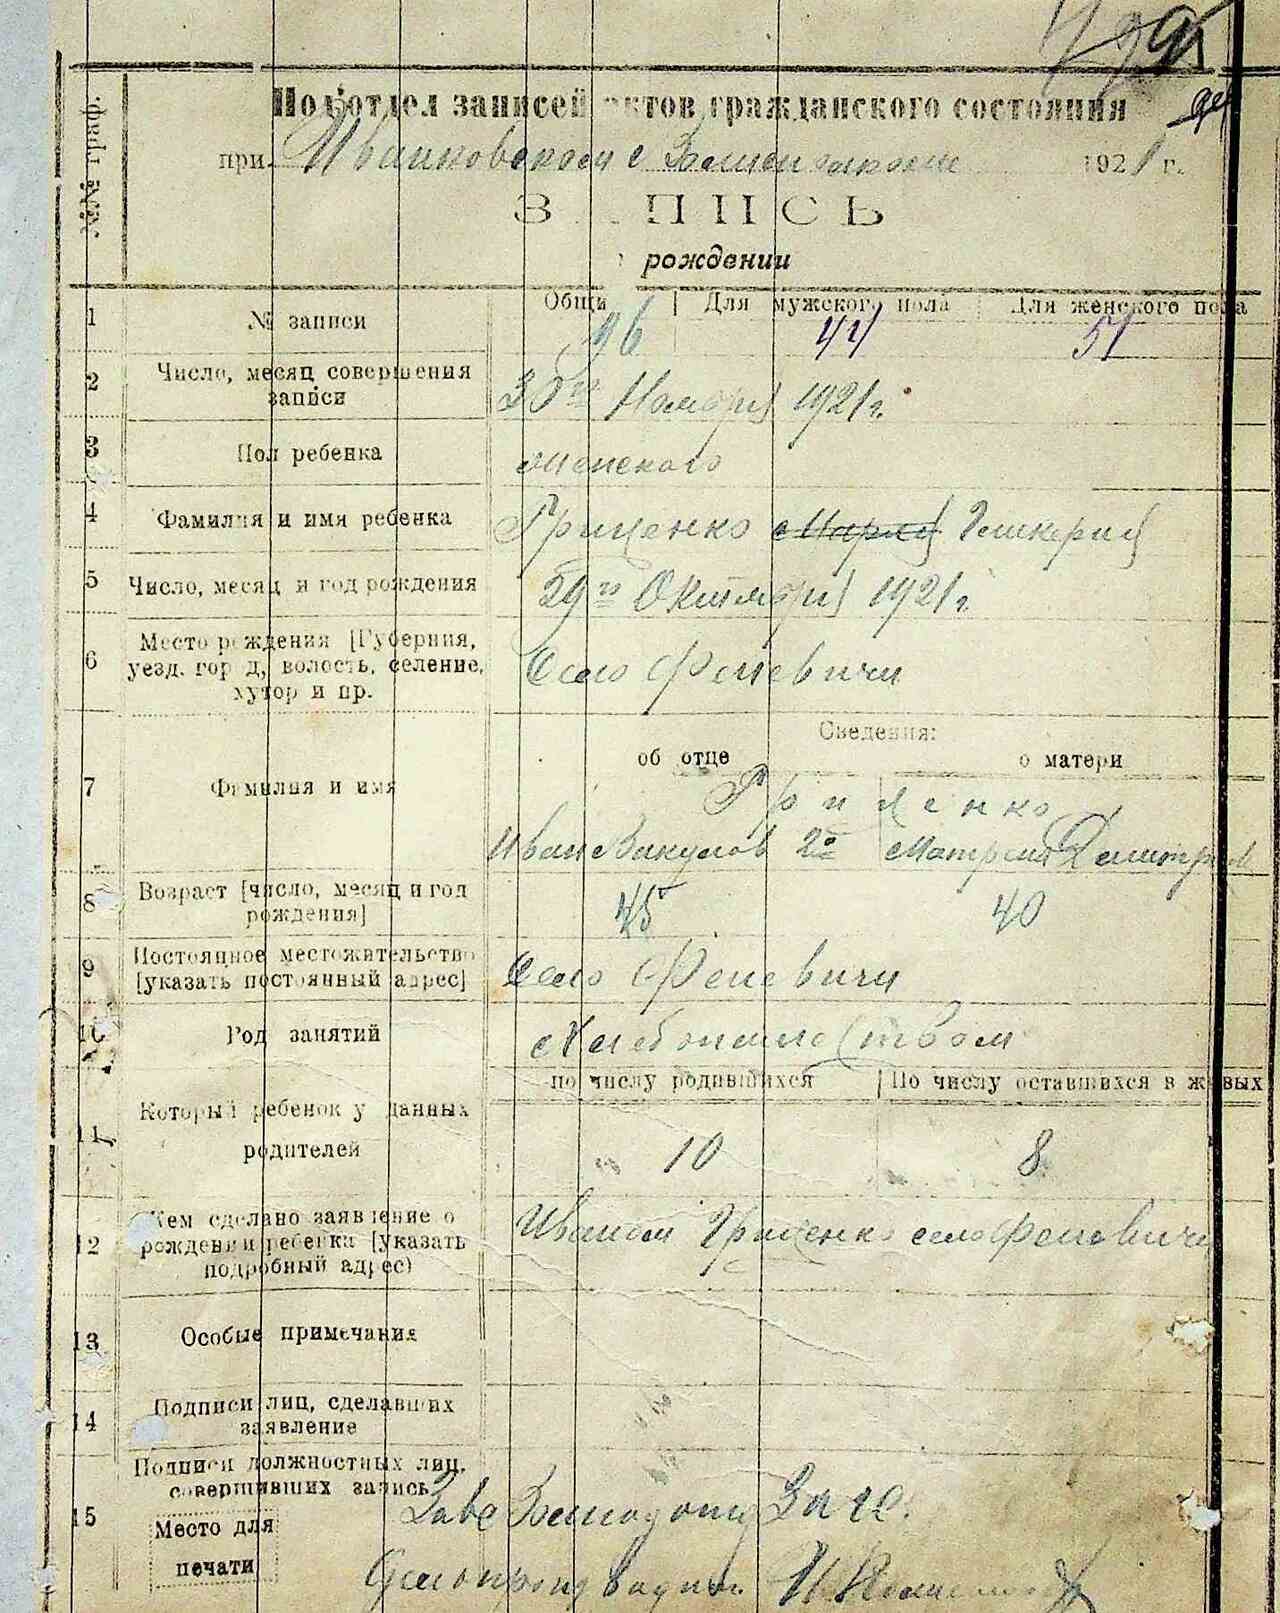 №№ граф.
Под'отдел записей актов гражданского состояния
при Иванковском 1921 г.
ЗАПИСЬ
рождении
Общий Для мужского пола Для женского пола
1 № записи 96 44 51
2 Число, месяц совершения записи 30го Ноября 1921 г.
3 Пол ребенка женского
4 Фамилия и имя ребенка Гриценко Мария Гликерия
5 Число, месяц и год рождения 29го Октября 1921 г.
6 Место рождения [Губерния, уезд. город, волость, селение, хутор и пр. Село Феневичи
Сведения:
об отце о матери
7 Фамилия и имя Гриценко
Иван Вакулов 2й Матрена Дмитров
8 Возраст [число, месяц и год рождения] 45 40
9 Постоянное местожительство [указать постоянный адрес] Село Феневичи
10 Род занятий Хлебопашеством
по числу родившихся По числу оставшихся в живых
11 Который ребенок у данных родителей 10 8
12 Кем сделано заявление о рождении ребенка [указать подробный адрес) Иваном Гриценко село Феневичи
13 Особые примечания
14 Подписи лиц, сделавших заявление
15 Подписи должностных лиц, совершивших запись
Место для печати
Завед. ЗАГС.
Делопроизводит.